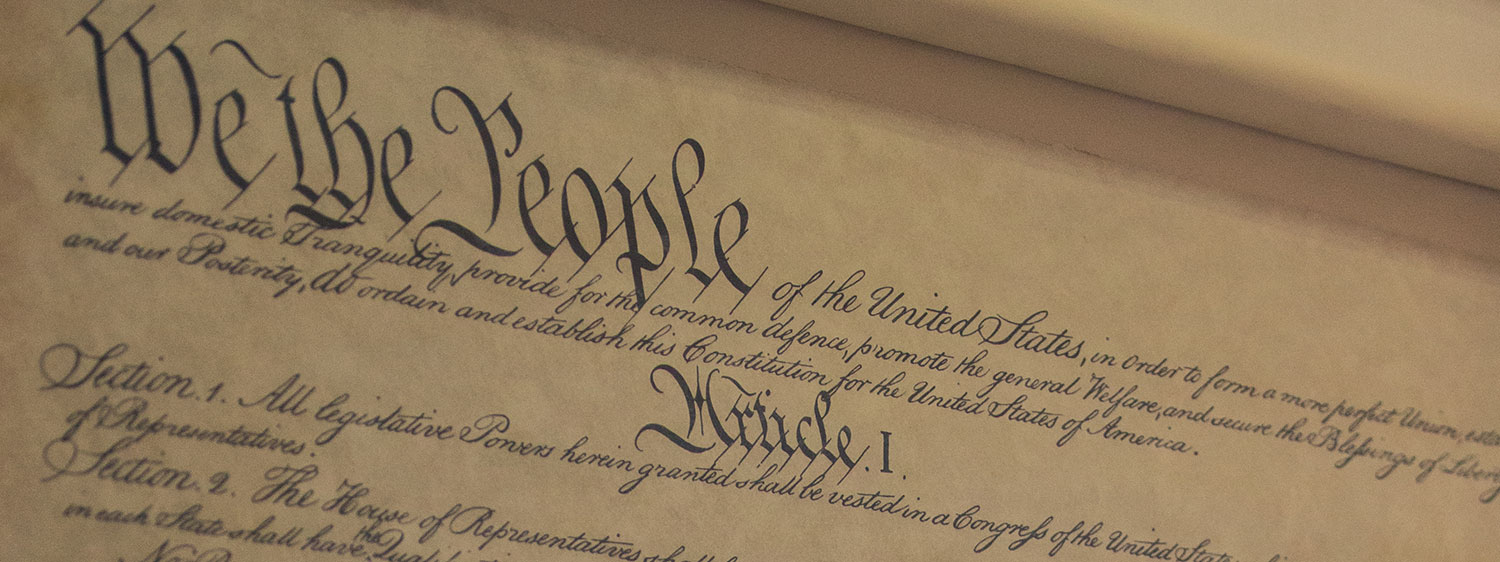 We the People of the United States, in order to form a more perfect Union, esta
insure domestic Tranquility, provide for the common defence, promote the general Welfare, and secure the Blessings of Liberty
and our Posterity, do ordain and establish this Constitution for the United States of America.
Article. I.
Section. 1. All legislative Powers herein granted shall be vested in a Congress of the United States
of Representatives.
Section. 2. The House of Representatives shall
in each State shall have the